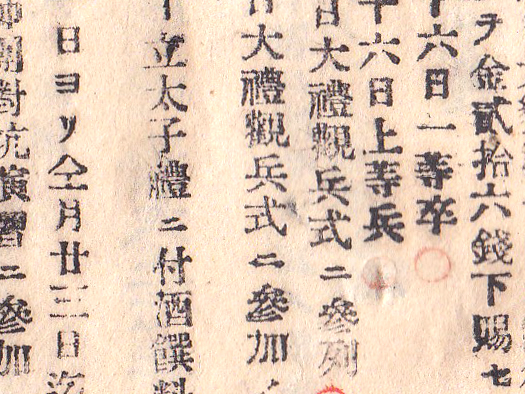 ヲ金貳拾六錢下賜セ
十六日一等卒
十六日上等兵
日大禮觀兵式ニ參列
大禮觀兵式ニ參加
立太子禮ニ付酒饌料
日ヨリ仝月廿三日迄
對抗演習ニ參加